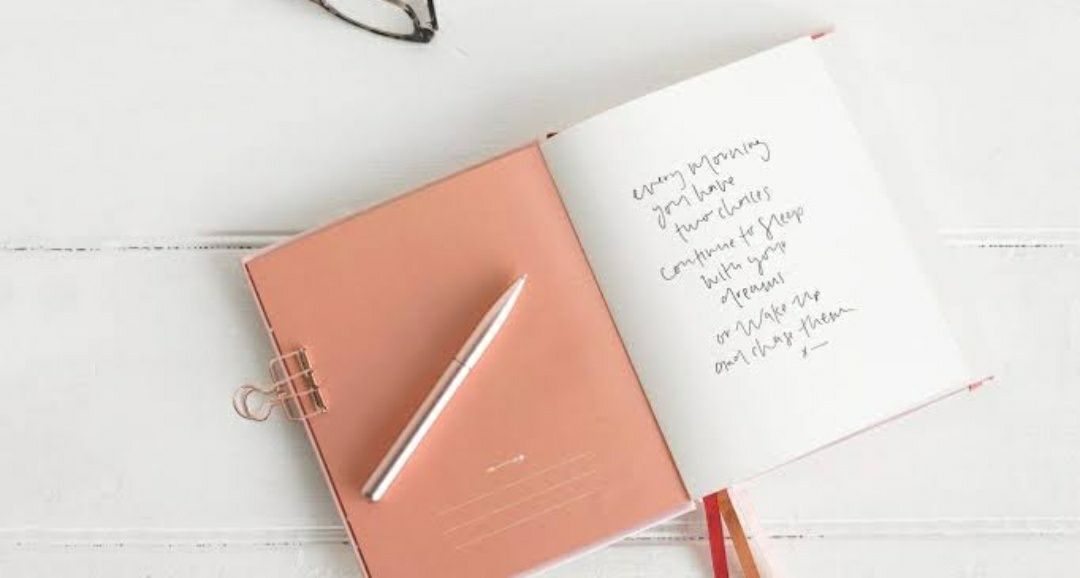 every morning
you have
two choices
continue to sleep
with your
dreams
or wake up
and chase them
x—